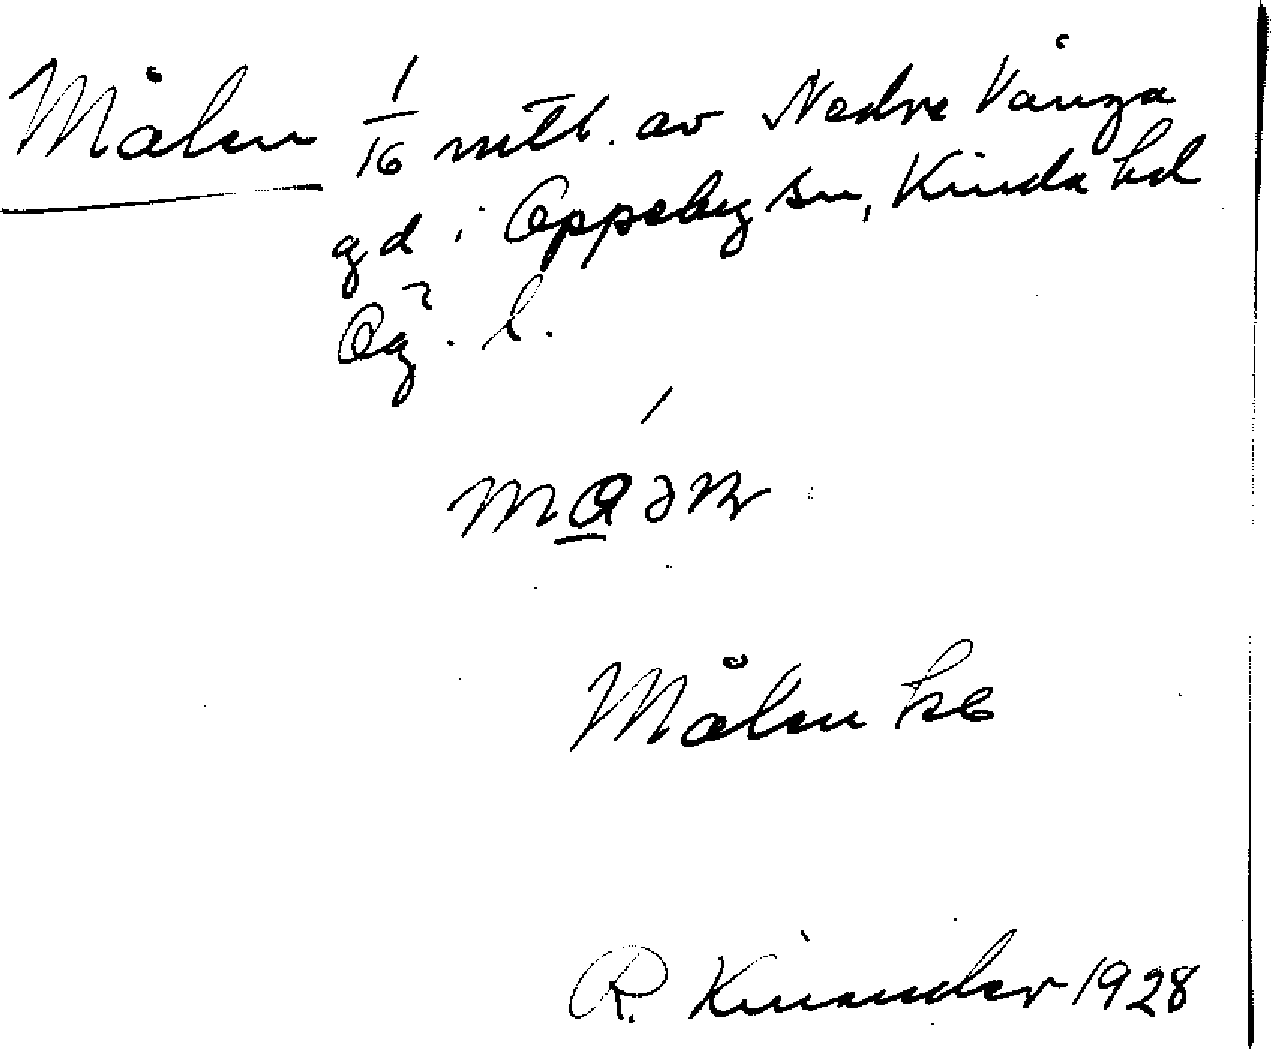 Målen 1/16 mtl. av Nedre Vånga
gd i Oppeby sn, Kinda hd
Ög. l.
Målen hé
R. Kinander 1928